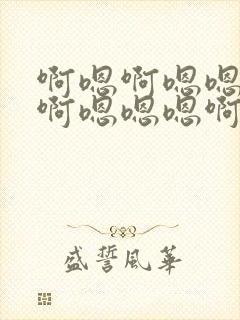 啊嗯啊嗯嗯
啊嗯嗯嗯啊
盛誓风华